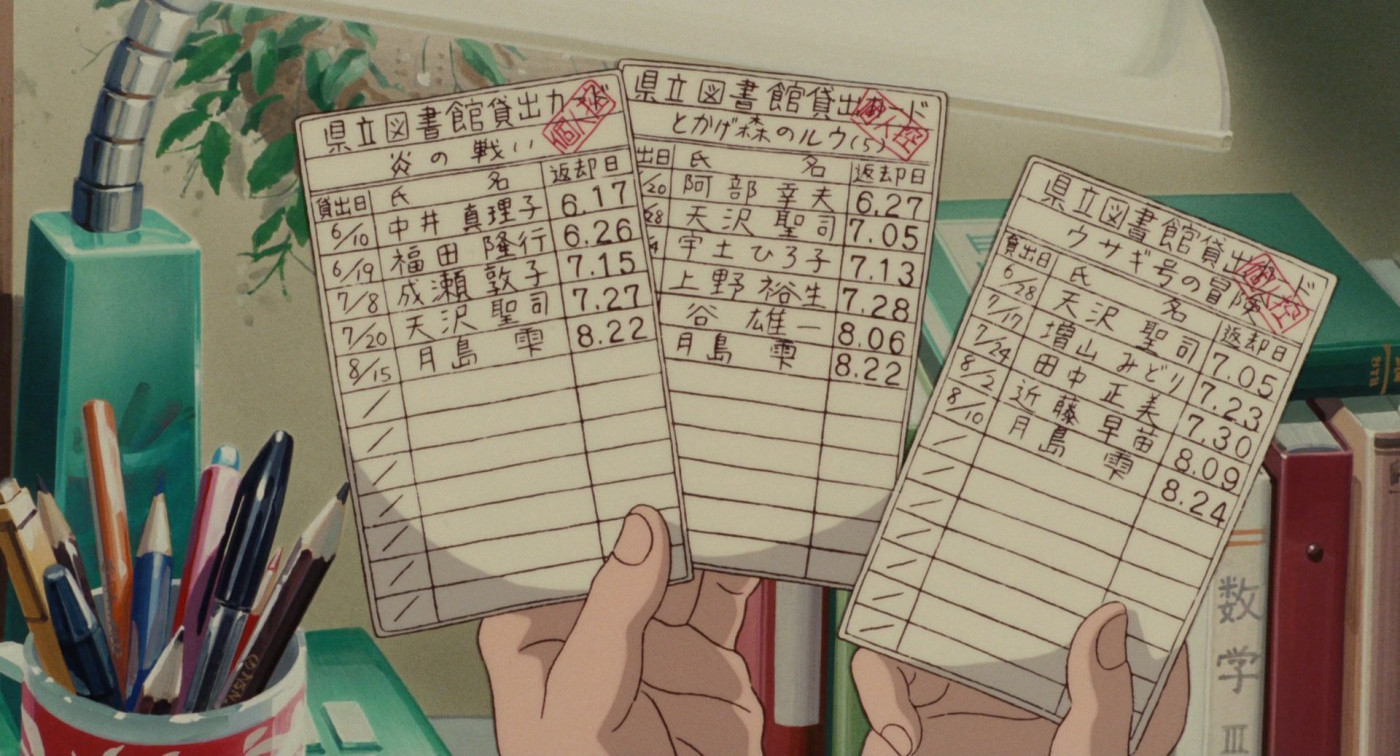 県立図書館貸出カード
炎の戦い
貸出日 氏名 返却日
6/10 中井 真理子 6.17
6/19 福田 隆行 6.26
7/8 成瀬 敦子 7.15
7/20 天沢 聖司 7.27
8/15 月島 雫 8.22
県立図書館貸出カード
とかげ森のルウ(5)
出日 氏名 返却日
/20 阿部 幸夫 6.27
/28 天沢 聖司 7.05
宇土 ひろ子 7.13
上野 裕生 7.28
谷 雄一 8.06
月島 雫 8.22
県立図書館貸出カード
ウサギ号の冒険
貸出日 氏名 返却日
6/28 天沢 聖司 7.05
7/17 増山 みどり 7.23
7/24 田中 正美 7.30
8/2 近藤 早苗 8.09
8/10 月島 雫 8.24
数学 III